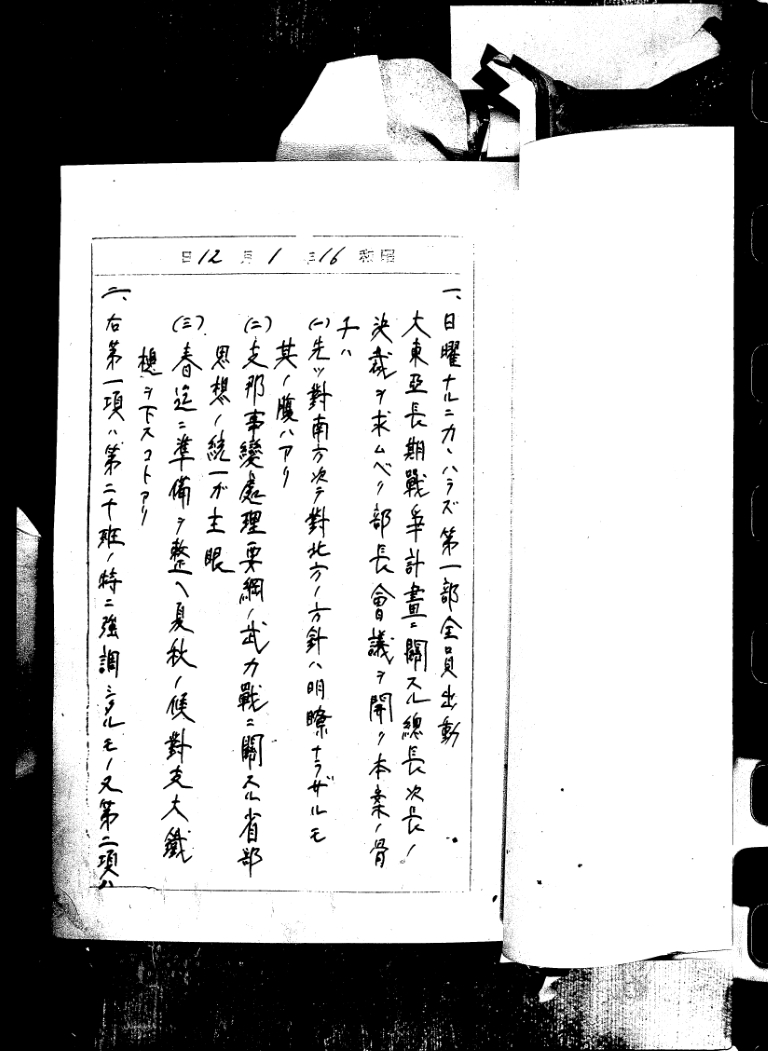 昭和16年1月12日
一、日曜ナルニカヽハラズ第一部全員出動
大東亞長期戰爭計畫ニ關スル總長次長ノ
決裁ヲ求ムベク部長會議ヲ開ク本案ノ骨
子ハ
(一)先ツ對南方次テ對北方ノ方針ハ明瞭ナラザルモ
其ノ腹ハアリ
(二)支那事變處理要綱ノ武力戰ニ關スル省部
思想ノ統一ガ主眼
(三)春迄ニ準備ヲ整ヘ夏秋ノ候對支大鐵
槌ヲ下スコトアリ
二、右第一項ハ第二十班ノ特ニ強調シタルモノ又第二項ハ